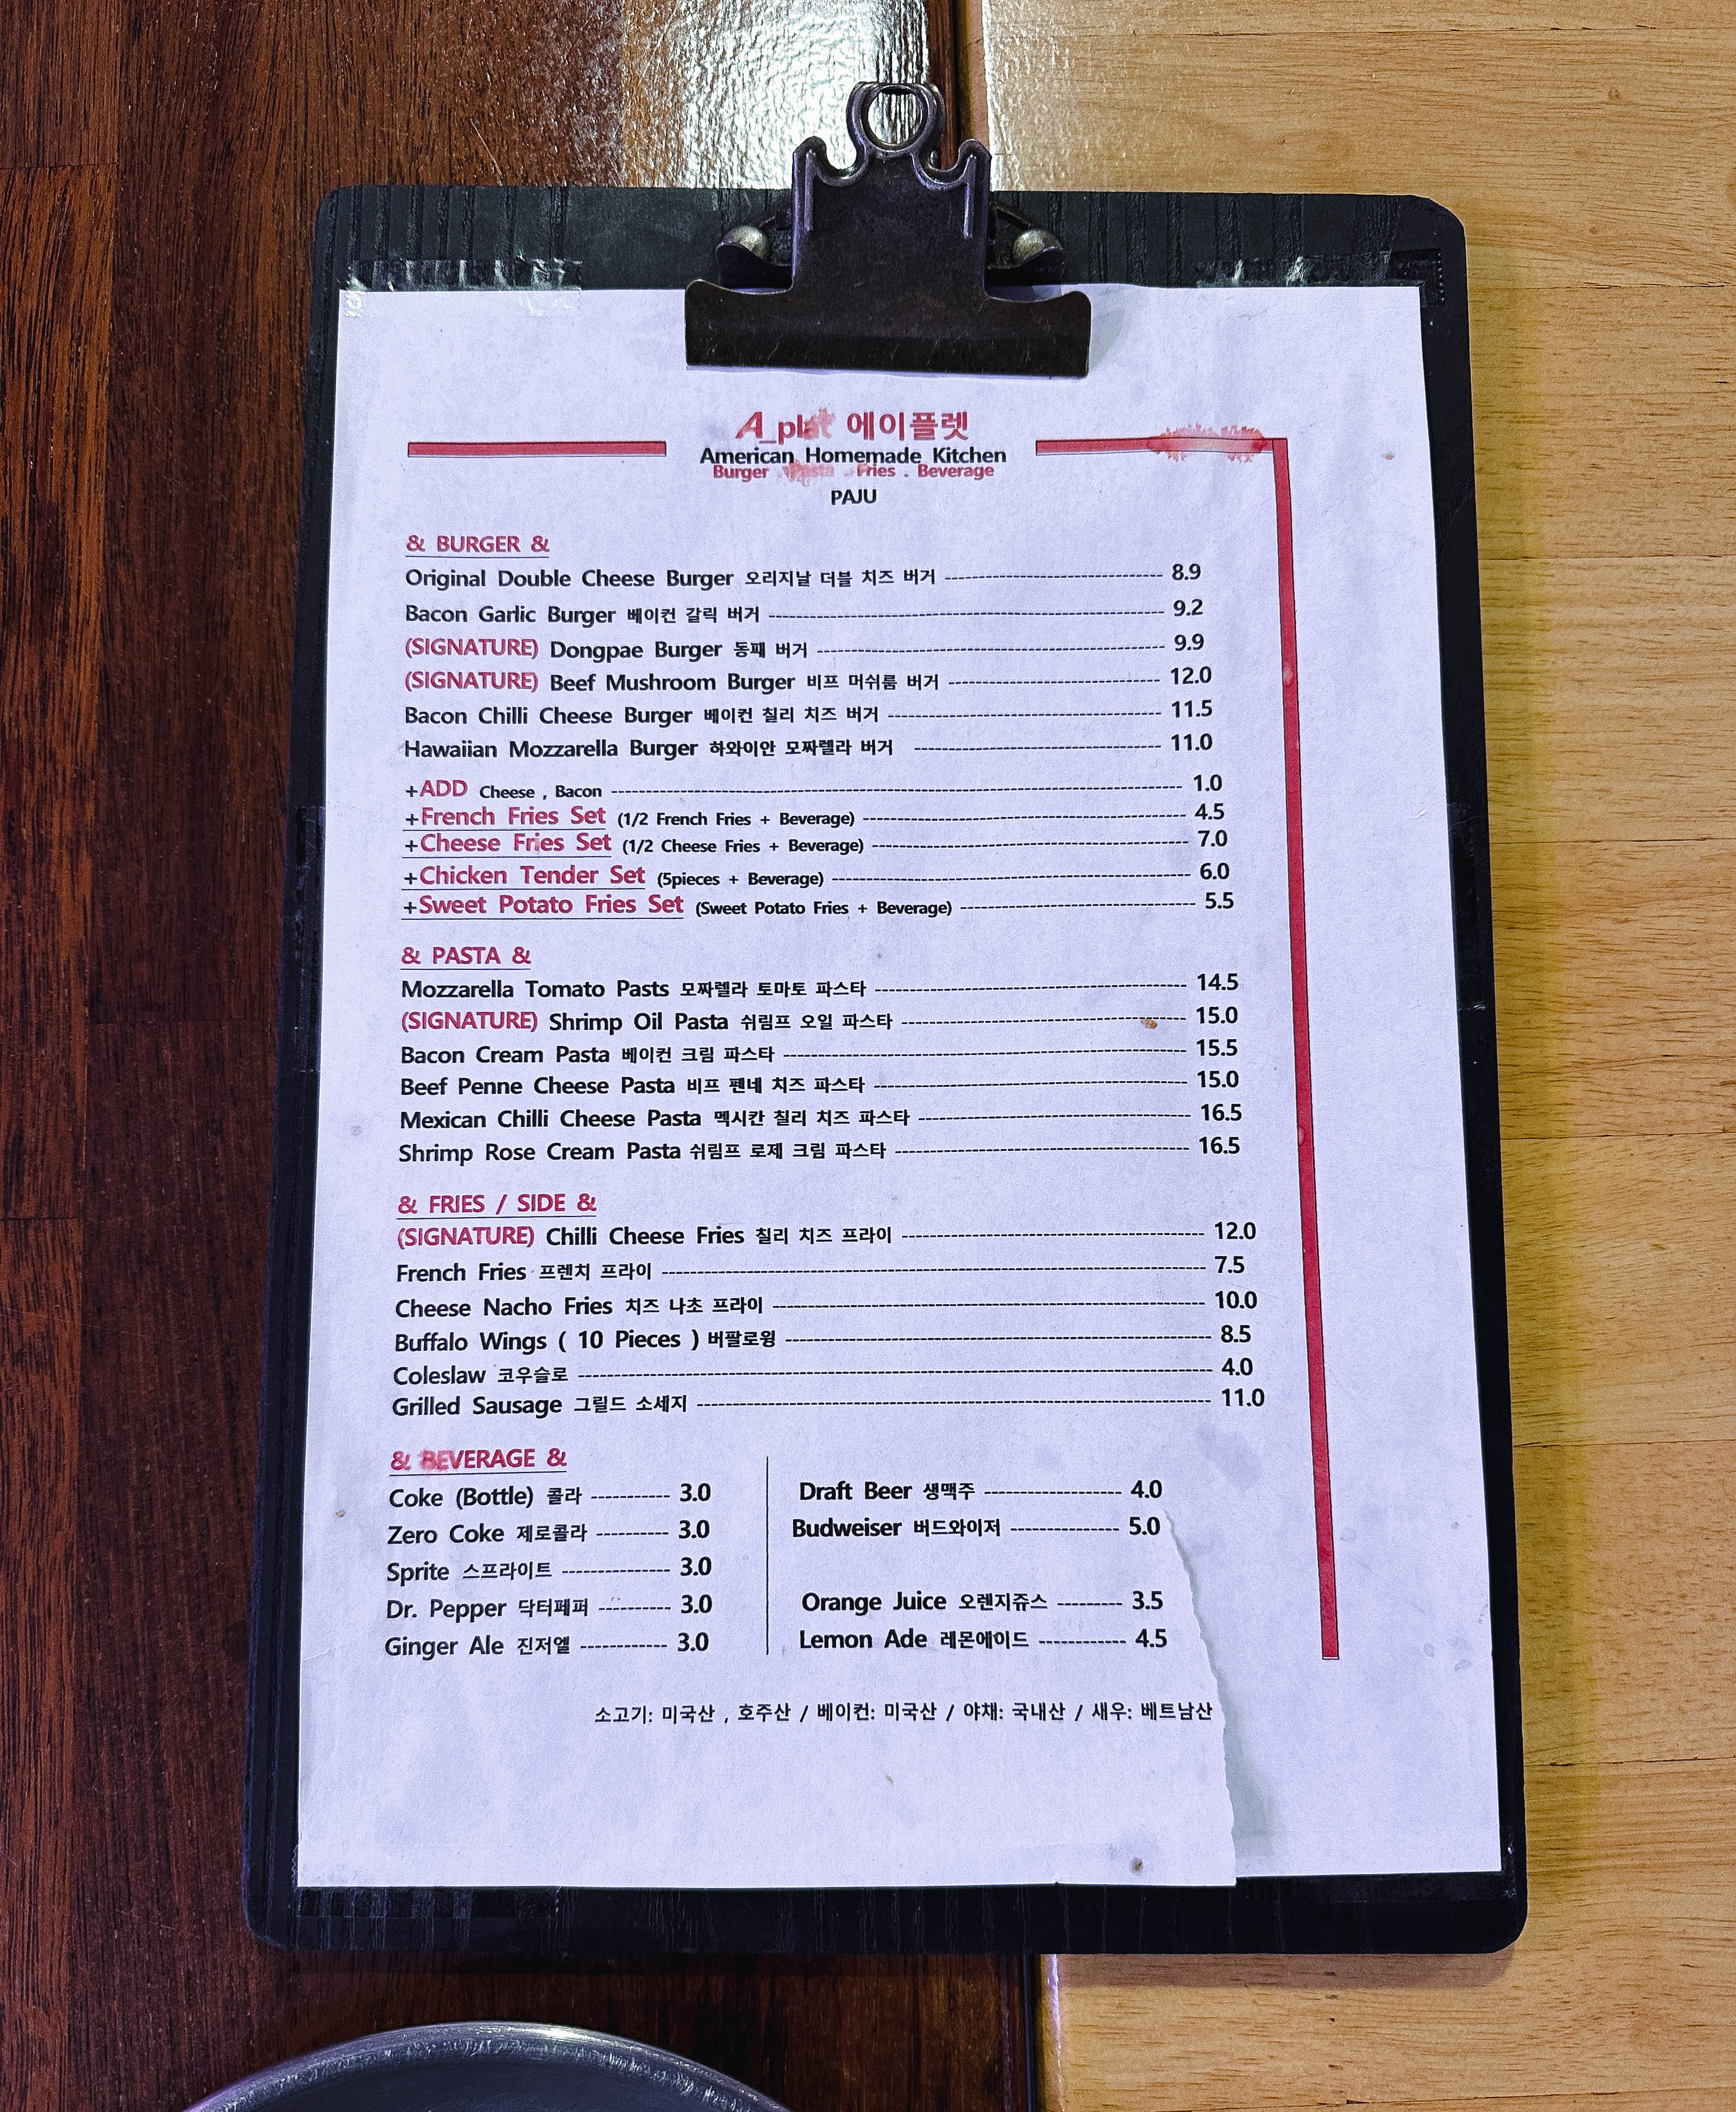 A_plat 에이플렛
American Homemade Kitchen
Burger . Pasta . Fries . Beverage
PAJU
& BURGER &
Original Double Cheese Burger 오리지날 더블 치즈 버거 ---------- 8.9
Bacon Garlic Burger 베이컨 갈릭 버거 ---------- 9.2
(SIGNATURE) Dongpae Burger 동패 버거 ---------- 9.9
(SIGNATURE) Beef Mushroom Burger 비프 머쉬룸 버거 ---------- 12.0
Bacon Chilli Cheese Burger 베이컨 칠리 치즈 버거 ---------- 11.5
Hawaiian Mozzarella Burger 하와이안 모짜렐라 버거 ---------- 11.0
+ADD Cheese , Bacon ---------- 1.0
+French Fries Set (1/2 French Fries + Beverage) ---------- 4.5
+Cheese Fries Set (1/2 Cheese Fries + Beverage) ---------- 7.0
+Chicken Tender Set (5pieces + Beverage) ---------- 6.0
+Sweet Potato Fries Set (Sweet Potato Fries + Beverage) ---------- 5.5
& PASTA &
Mozzarella Tomato Pasts 모짜렐라 토마토 파스타 ---------- 14.5
(SIGNATURE) Shrimp Oil Pasta 쉬림프 오일 파스타 ---------- 15.0
Bacon Cream Pasta 베이컨 크림 파스타 ---------- 15.5
Beef Penne Cheese Pasta 비프 펜네 치즈 파스타 ---------- 15.0
Mexican Chilli Cheese Pasta 멕시칸 칠리 치즈 파스타 ---------- 16.5
Shrimp Rose Cream Pasta 쉬림프 로제 크림 파스타 ---------- 16.5
& FRIES / SIDE &
(SIGNATURE) Chilli Cheese Fries 칠리 치즈 프라이 ---------- 12.0
French Fries 프렌치 프라이 ---------- 7.5
Cheese Nacho Fries 치즈 나초 프라이 ---------- 10.0
Buffalo Wings ( 10 Pieces ) 버팔로윙 ---------- 8.5
Coleslaw 코우슬로 ---------- 4.0
Grilled Sausage 그릴드 소세지 ---------- 11.0
& BEVERAGE &
Coke (Bottle) 콜라 ---------- 3.0
Zero Coke 제로콜라 ---------- 3.0
Sprite 스프라이트 ---------- 3.0
Dr. Pepper 닥터페퍼 ---------- 3.0
Ginger Ale 진저엘 ---------- 3.0
Draft Beer 생맥주 ---------- 4.0
Budweiser 버드와이저 ---------- 5.0
Orange Juice 오렌지쥬스 ---------- 3.5
Lemon Ade 레몬에이드 ---------- 4.5
소고기: 미국산 , 호주산 / 베이컨: 미국산 / 야채: 국내산 / 새우: 베트남산